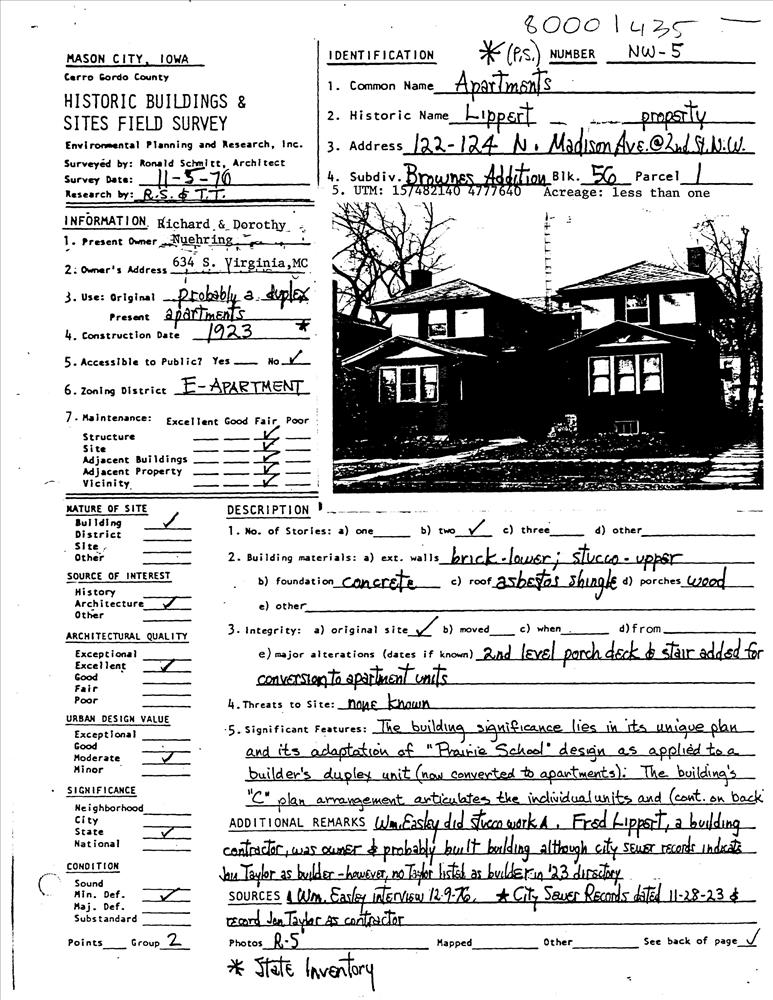 80001435
MASON CITY, IOWA
Cerro Gordo County
HISTORIC BUILDINGS &
SITES FIELD SURVEY
Environmental Planning and Research, Inc.
Surveyed by: Ronald Schmitt, Architect
Survey Date: 11-5-76
Research by: R.S. & T.T.
IDENTIFICATION * (P.S.) NUMBER NW-5
1. Common Name Apartments
2. Historic Name Lippert property
3. Address 122-124 N. Madison Ave. @ 2nd St. N.W.
4. Subdiv. Brownes Addition Blk. 56 Parcel 1
5. UTM: 15/482140 4777640 Acreage: less than one
INFORMATION
1. Present Owner Richard & Dorothy Nuehring
2. Owner's Address 634 S. Virginia, MC
3. Use: Original probably a duplex
Present apartments
4. Construction Date 1923 *
5. Accessible to Public? Yes ___ No ✓
6. Zoning District E-APARTMENT
7. Maintenance: Excellent Good Fair Poor
Structure ✓
Site ✓
Adjacent Buildings ✓
Adjacent Property ✓
Vicinity ✓
NATURE OF SITE
Building ✓
District
Site
Other
SOURCE OF INTEREST
History
Architecture ✓
Other
ARCHITECTURAL QUALITY
Exceptional
Excellent ✓
Good
Fair
Poor
URBAN DESIGN VALUE
Exceptional
Good
Moderate ✓
Minor
SIGNIFICANCE
Neighborhood
City
State ✓
National
CONDITION
Sound
Min. Def. ✓
Maj. Def.
Substandard
Points ___ Group 2
DESCRIPTION
1. No. of Stories: a) one ___ b) two ✓ c) three ___ d) other ___
2. Building materials: a) ext. walls brick-lower; stucco-upper
b) foundation concrete c) roof asbestos shingle d) porches wood
e) other
3. Integrity: a) original site ✓ b) moved ___ c) when ___ d) from ___
e) major alterations (dates if known) 2nd level porch deck & stair added for
conversion to apartment units
4. Threats to Site: none known
5. Significant Features: The building significance lies in its unique plan
and its adaptation of "Prairie School" design as applied to a
builder's duplex unit (now converted to apartments). The building's
"C" plan arrangement articulates the individual units and (cont. on back
ADDITIONAL REMARKS Wm. Easley did stucco work. Fred Lippert, a building
contractor, was owner & probably built building although city sewer records indicate
Jen Taylor as builder - however, no Taylor listed as builder in '23 directory
SOURCES Wm. Easley interview 12-9-76. * City Sewer Records dated 11-28-23 &
record Jen Taylor as contractor
Photos R-5 Mapped ___ Other ___ See back of page ✓
* State Inventory